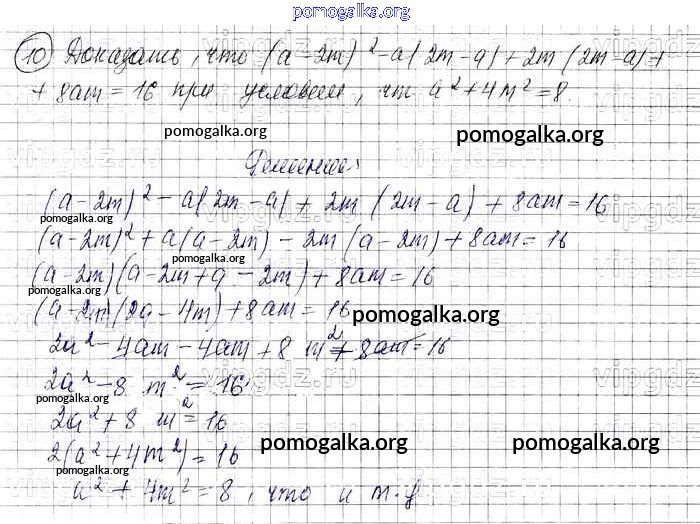 pomogalka.org
10 Доказать, что (a-2m)²-a(2m-a)+2m(2m-a)+
+8am=16 при условии, что a²+4m²=8.
pomogalka.org pomogalka.org
Решение:
(a-2m)²-a(2m-a)+2m(2m-a)+8am=16
pomogalka.org
(a-2m)²+a(a-2m)-2m(a-2m)+8am=16
pomogalka.org
(a-2m)(a-2m+a-2m)+8am=16
pomogalka.org
(a-2m)(2a-4m)+8am=16
pomogalka.org
2a²-4am-4am+8m²+8am=16
2a²-8m²=16
pomogalka.org
2a²+8m²=16
2(a²+4m²)=16
pomogalka.org pomogalka.org pomogalka.org
a²+4m²=8, что и т.д